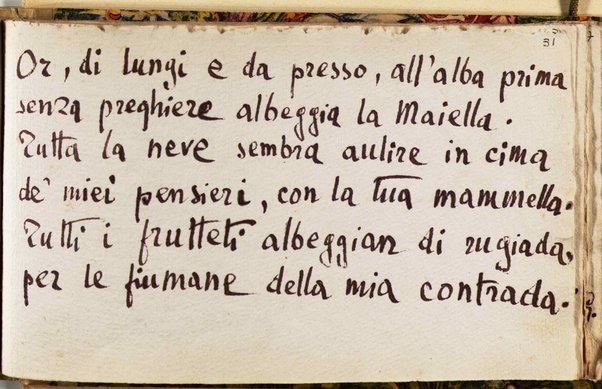 31
Or, di lungi e da presso, all'alba prima
senza preghiere albeggia la Maiella.
Tutta la neve sembra aulire in cima
de' miei pensieri, con la tua mammella.
Tutti i frutteti albeggian di rugiada,
per le fiumane della mia contrada.